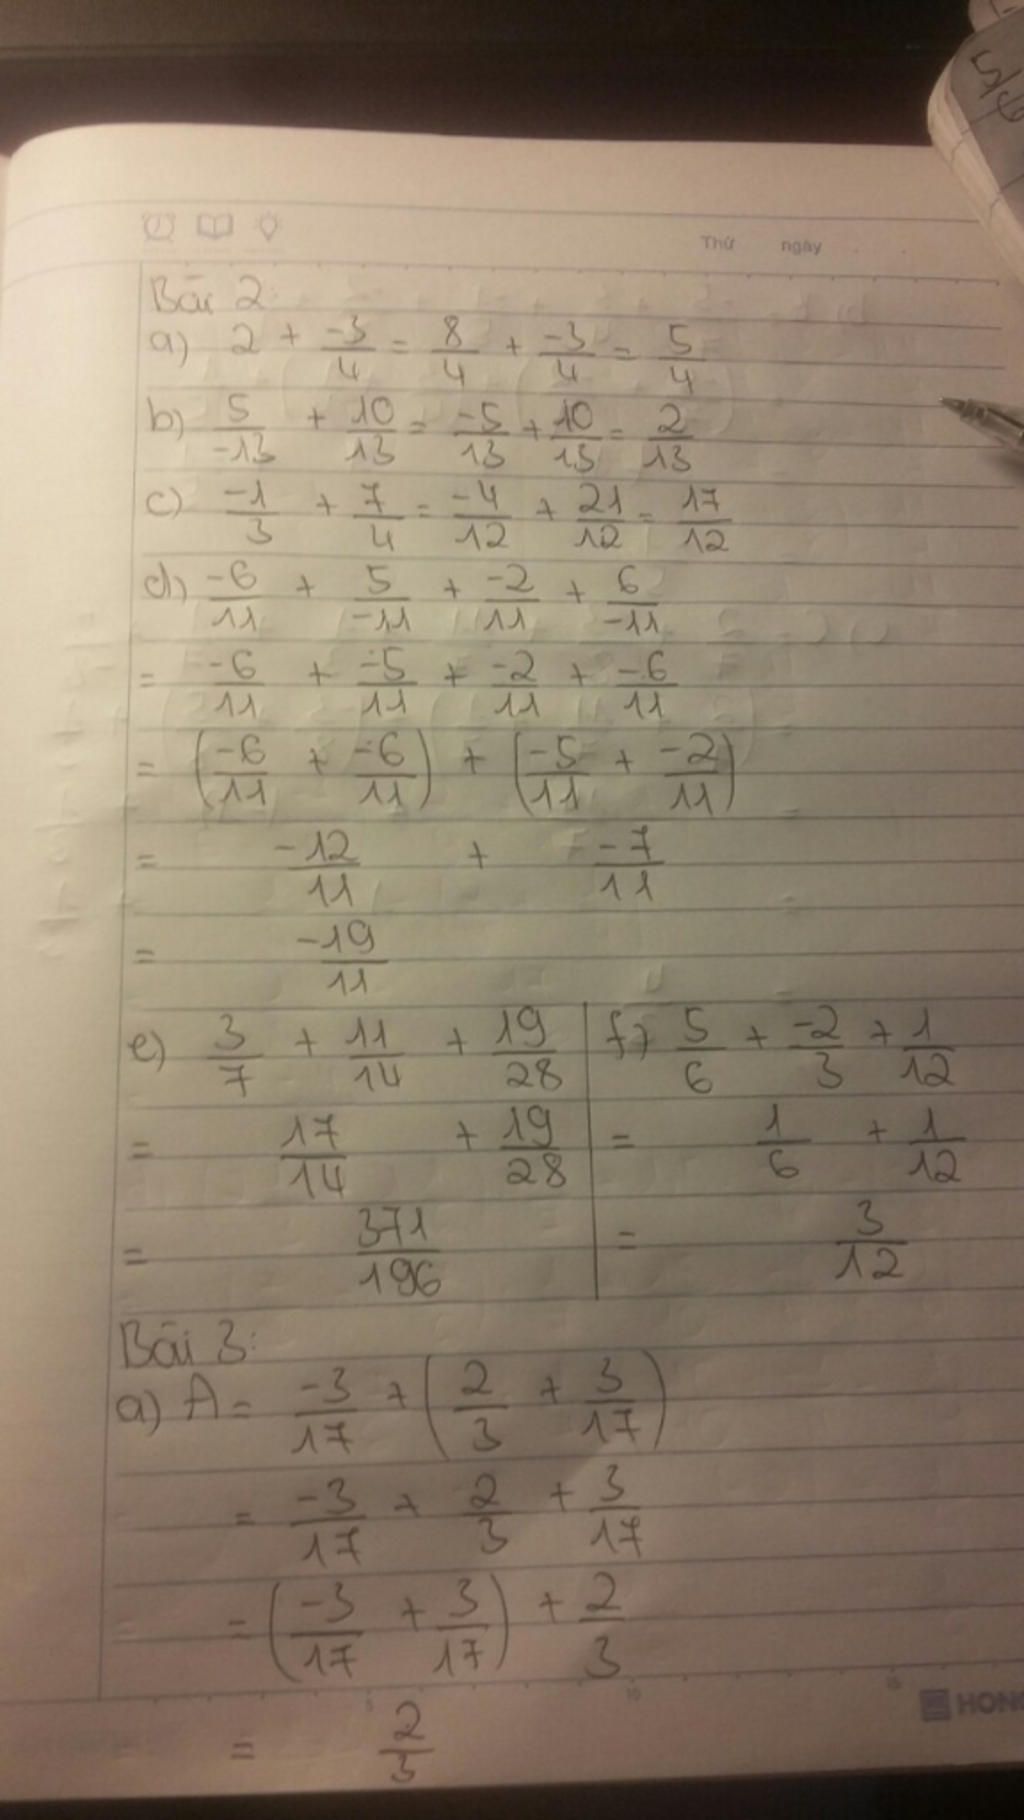 Thứ ngày
Bài 2:
a) 2 + -3/4 = 8/4 + -3/4 = 5/4
b) 5/-13 + 10/13 = -5/13 + 10/13 = 2/13
c) -1/3 + 7/4 = -4/12 + 21/12 = 17/12
d) -6/11 + 5/-11 + -2/11 + 6/-11
= -6/11 + -5/11 + -2/11 + -6/11
= (-6/11 + -6/11) + (-5/11 + -2/11)
= -12/11 + -7/11
= -19/11
e) 3/7 + 11/14 + 19/28
= 17/14 + 19/28
= 371/196
f) 5/6 + -2/3 + 1/12
= 1/6 + 1/12
= 3/12
Bài 3:
a) A = -3/17 + (2/3 + 3/17)
= -3/17 + 2/3 + 3/17
= (-3/17 + 3/17) + 2/3
5 10 15
= 2/3